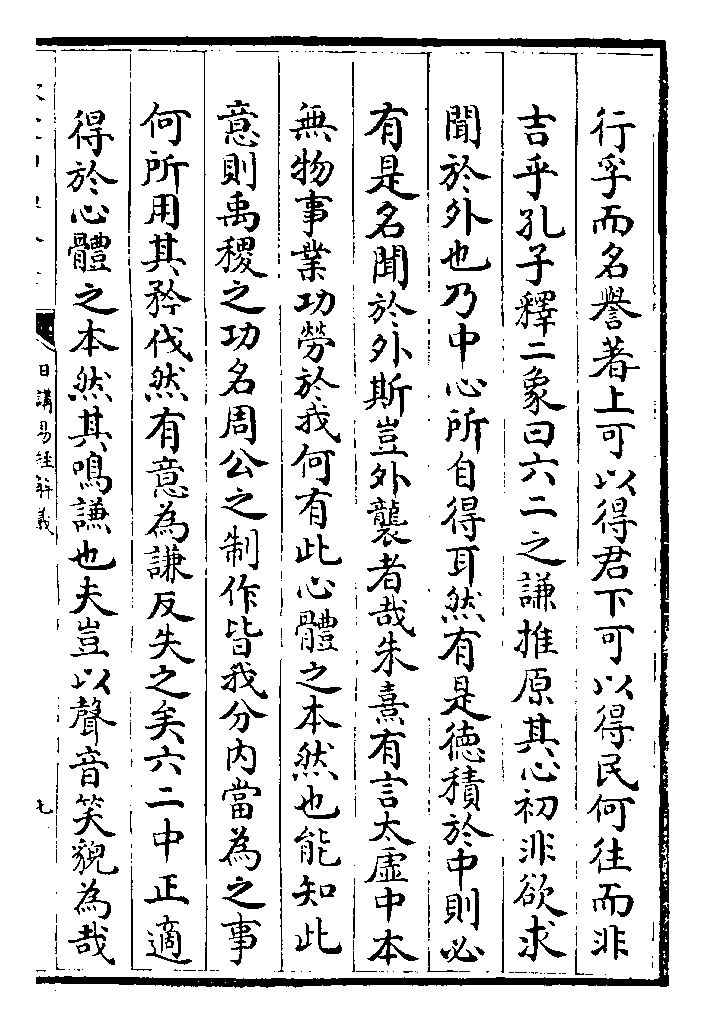 行孚而名譽著上可以得君下可以得民何往而非
吉乎孔子釋二象曰六二之謙推原其心初非欲求
聞於外也乃中心所自得耳然有是徳積於中則必
有是名聞於外斯豈外襲者哉朱熹有言太虛中本
無物事業功勞於我何有此心體之本然也能知此
意則禹稷之功名周公之制作皆我分内當為之事
何所用其矜伐然有意為謙反失之矣六二中正適
得於心體之本然其鳴謙也夫豈以聲音笑貌為哉
日講易經解義
七